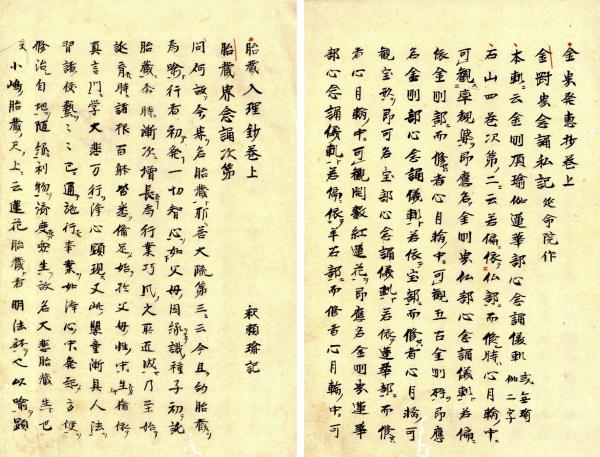 金界発恵抄卷上
金剛界念誦私記 延命院作
本軌云金剛頂瑜伽蓮華部心念誦儀軌 或無瑜伽二字
石山四卷次第二云若偏依仏部而修時心月輪中
可觀率覩婆即應名金剛仏部心念誦儀軌若偏
依金剛部而修者心月輪中可觀五古金剛杵即應
名金剛部心念誦儀軌若依宝部而修者心月輪可
觀宝形即可名宝部心念誦儀軌若依蓮華部而修
者心月輪中可觀開敷紅蓮花即應名金剛界蓮華
部心念誦儀軌若偏依羊石部而修者心月輪中可
胎蔵入理鈔卷上
胎蔵界念誦次第
釈頼瑜記
問何故今名胎蔵耶答大疏第三云今且約胎蔵
為喩行者初發一切智心如父母因縁識種子初託
胎蔵尓時漸次増長為行業巧風之所匠成乃至始
誕育時諸根百躰皆悉備足始於父母種中生猶依
真言門学大悲万行浄心顕現又此嬰童漸具人法
習諸伎藝々々已通施行事業如浄心中發起方便
修治自地随縁利物済度衆生故名大悲胎蔵生也
文小嶋胎蔵尺上云蓮花胎蔵者明法躰也以喩顕